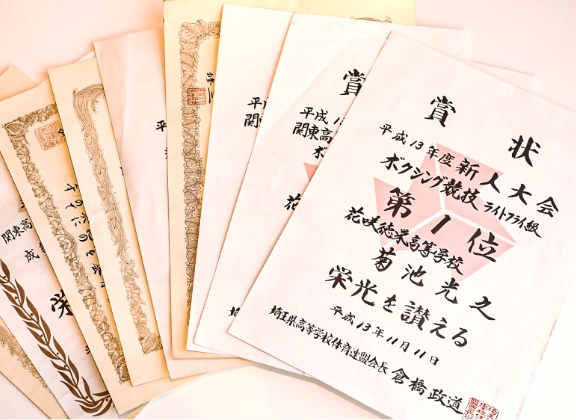 賞状
平成13年度新人大会
ボクシング競技 ライトフライ級
第1位
花咲徳栄高等学校
菊池光之
栄光を讃える
平成13年11月11日
埼玉県高等学校体育連盟会長 倉橋政道
賞
平成1
関東高
花
平
関東高
成
栄